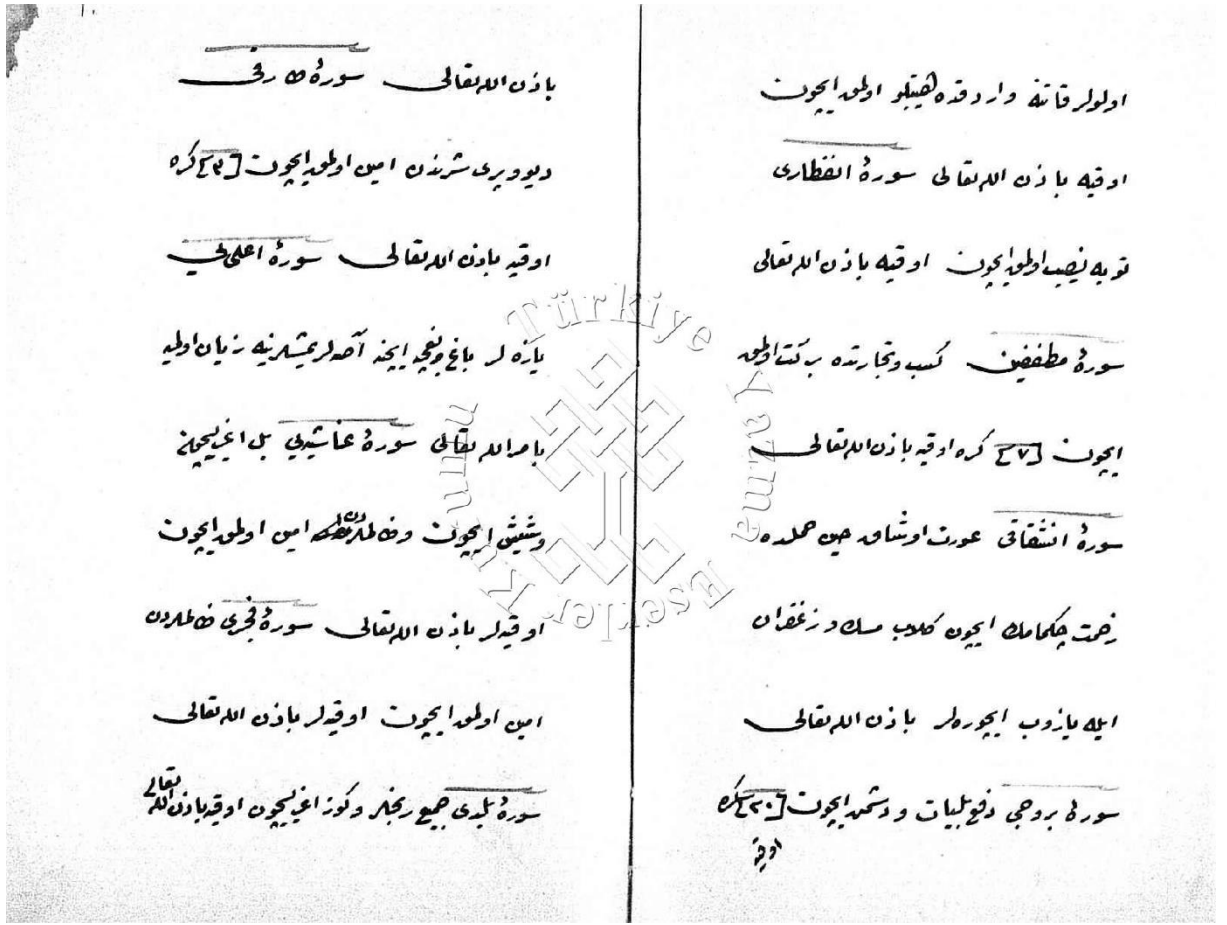 اولولر قاتنه واردقده هيبتلو اولمق ايچون
اوقيه باذن الله تعالى سورۀ انفطارى
توبه نصيب اولمق ايچون اوقيه باذن الله تعالى
سورۀ مطففين كسب وتجارتده بركت اولمق
ايچون [٧] كره اوقيه باذن الله تعالى
سورۀ انشقاقى عورت اوشاق حين حملده
زحمت چكمامك ايچون كلاب مسك و زغفران
ايله يازوب ايچوره لر باذن الله تعالى
سورۀ بروجى دفع بليات و دشمن ايچون [٢٠] كره
اوقيه
باذن الله تعالى سورۀ طارقى
ديو وپرى شرندن امين اولمق ايچون [٣] كره
اوقيه باذن الله تعالى سورۀ اعلى يى
يازه لر باغ وبغچه ايچنه آصه لر يمشلرينه زيان اولميه
بامر الله تعالى سورۀ غاشيه يى بل اغريسيچون
وشيش ايچون وظالملردن امين اولمق ايچون
اوقيه لر باذن الله تعالى سورۀ فجرى ظالملردن
امين اولمق ايچون اوقيه لر باذن الله تعالى
سورۀ بلدى جميع رنجلر وكوز اغريسيچون اوقيه باذن الله تعالى
Türkiye Yazma Eserler Kurumu